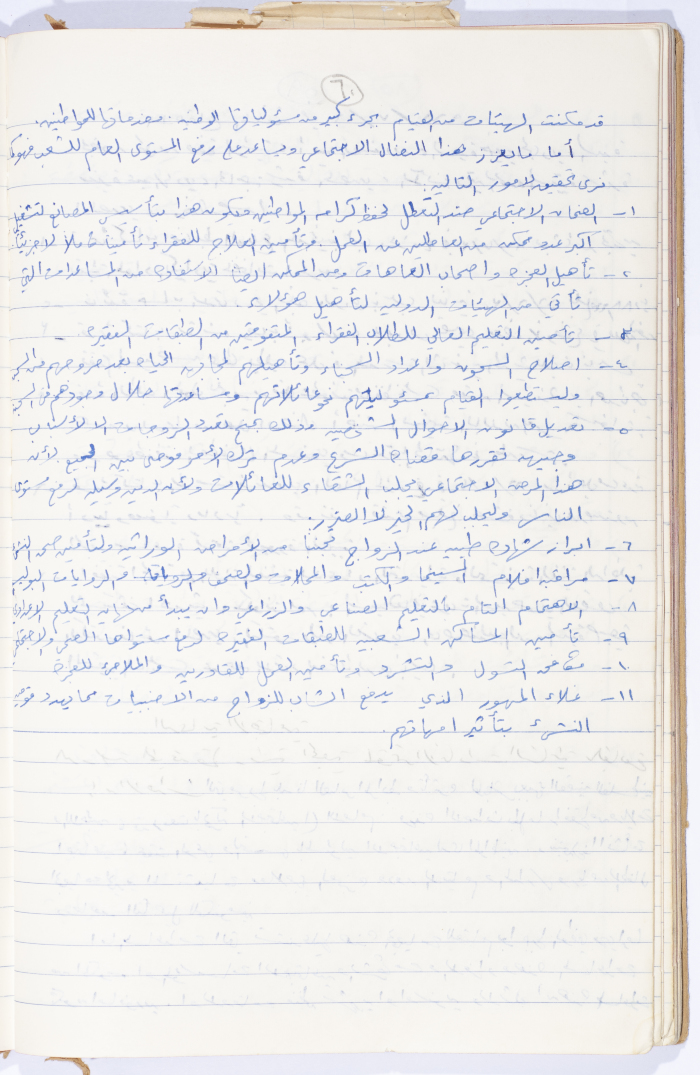 ٦
قد مكنت الهيئات من القيام بجزء كبير من مسؤولياتها الوطنية وخدماتها للمواطنين.
أما ما يعزز هذا النضال الاجتماعي ويساعد على رفع المستوى العام للشعب فهو
نرى تحقيق الامور التالية
١ - الضمان الاجتماعي ضد التعطل لحفظ كرامة المواطنين ويكون هذا بتأسيس المصانع لتشغيل
اكبر عدد ممكن من العاطلين عن العمل وتأمين العلاج للفقراء تأمينا كاملا لا جزئيا
٢ - تأهيل العجزة واصحاب العاهات ومن الممكن ايضا الاستفادة من المساعدات التي
تأتي من الهيئات الدولية لتأهيل هؤلاء.
٣ - تأمين التعليم العالي للطلاب الفقراء المتفوقين من الطبقات الفقيرة -
٤ - اصلاح السجون واعداد السجناء وتأهيلهم لمجابهة الحياة بعد خروجهم من
وليستطيعوا القيام بمسئولياتهم نحو عائلاتهم ومساعدتها خلال وجودهم في
٥ - تعديل قانون الاحوال الشخصية وذلك بمنع تعدد الزوجات الا لأسباب
وجيهة تقررها قضاة الشرع وعدم ترك الأمر فوضى بين الجميع لأن
هذا المرض الاجتماعي يجلب الشقاء للعائلات ولأن الدين وسيلة لرفع مستوى
الناس وليجلب لهم الخير لا الضرر.
٦ - ابراز شهادة طبية عند الزواج تجنبا من الأمراض الوراثية ولتأمين صحة
٧ - مراقبة افلام السينما والكتب والمجلات والصحف والروايات البوليسية
٨ - الاهتمام التام بالتعليم الصناعي والزراعي وان يبدأ من نهاية التعليم الاعدادي
٩ - تأمين المساكن الشعبية للطبقات الفقيرة لرفع مستواها الصحي والاجتماعي
١٠ - مكافحة التسول والتشرد وتأمين العمل للقادرين والملاجئ للعجزة
١١ - غلاء المهور الذي يدفع الشباب للزواج من الاجنبيات مما يهدد قومية
النشئ بتأثير امهاتهم.